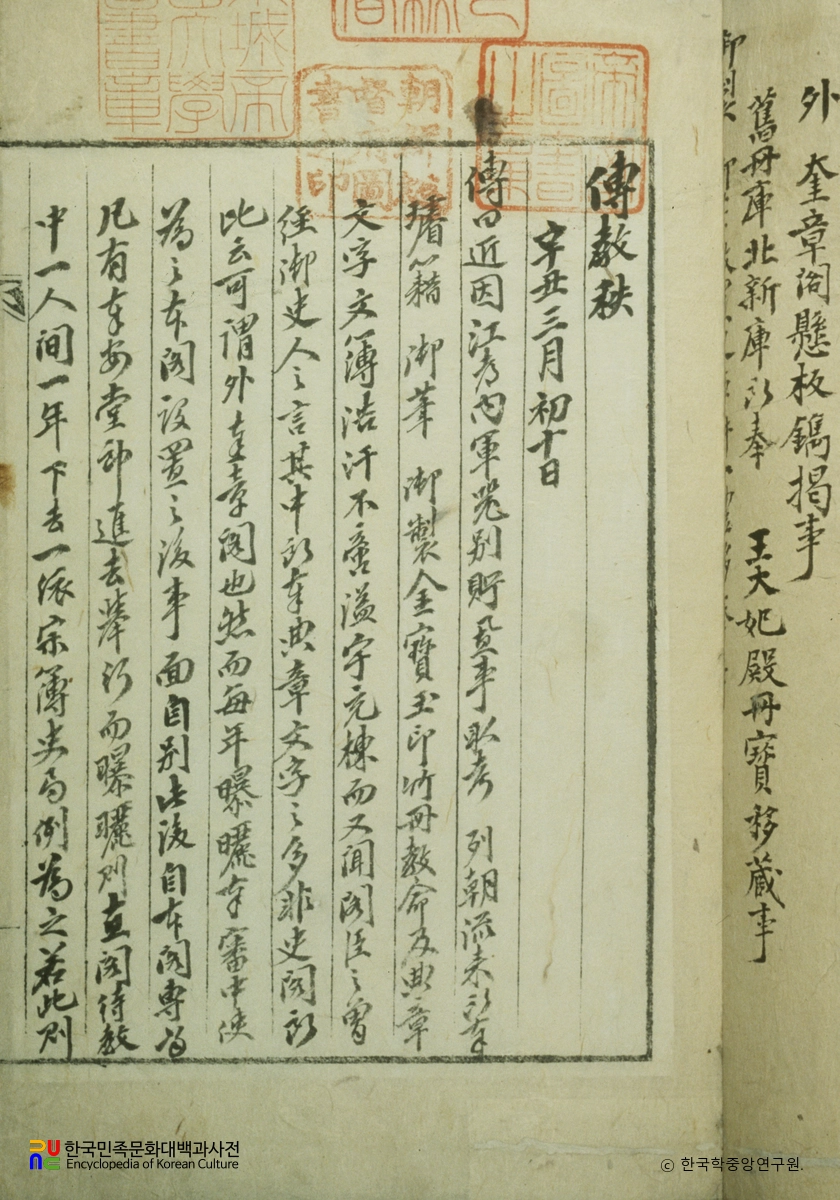 外奎章閣懸板鐫揭事
舊冊庫北新庫所奉 王大妃殿冊寶移藏事
御製
傳教秩
辛丑三月初十日
傳曰近因江都內軍器別貯置事取考 列朝流來所奉
璿籍 御筆 御製金寶玉印竹冊教命及典章
文字文簿浩汗不啻溢宇充棟而又聞閣臣之曾
經御史人之言其中所奉典章文字之多非史閣所
比云可謂外奎章閣也然而每年曝曬奉審中使
為之本閣設置之後事面自別此後自本閣專為
凡有奉安堂郎進去擧行而曝曬則直閣待教
中一人間一年下去一依宗簿史局例為之若此則
帝
圖書
朝鮮總
督府圖
書之印
城帝
大學
書章
한국민족문화대백과사전
Encyclopedia of Korean Culture
ⓒ 한국학중앙연구원.